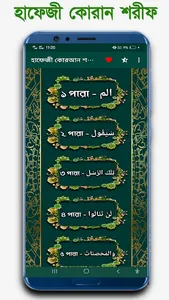 হাফেজী কোরান শরীফ
11:00
হাফেজী কোরআন শ...
১ পারা - الم
২ পারা - سَيَقُولُ
৩ পারা - تِلْكَ الرُّسُلُ
৪ পারা - لَنْ تَنَالُوا
৫ পারা - وَالْمُحْصَنَاتُ